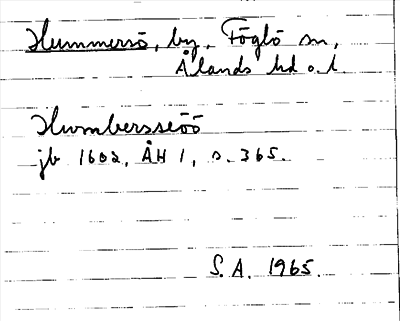 Hummersö, by, Föglö sn,
Ålands hd o. l.
Humbersseöö
jb 1602, ÅH 1, s. 365.
S.A. 1965.